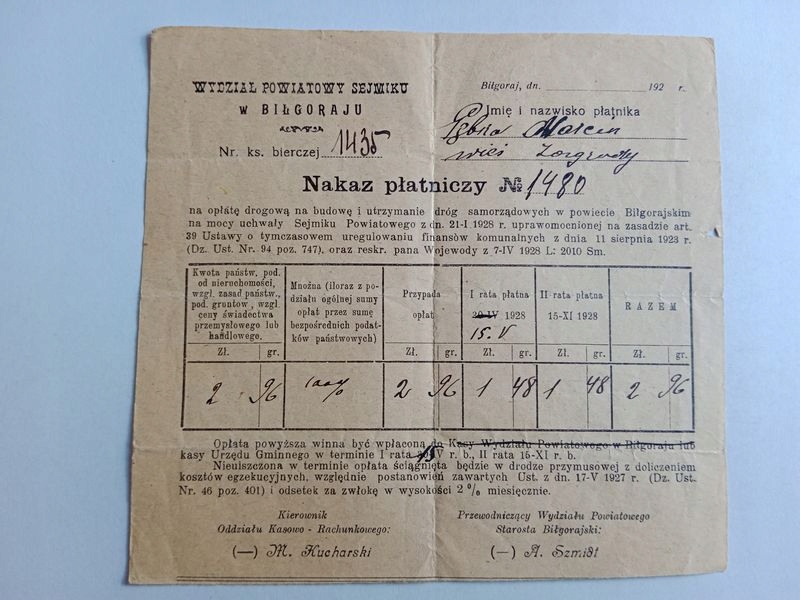 WYDZIAŁ POWIATOWY SEJMIKU
w BIŁGORAJU
Nr. ks. bierczej 1435
Biłgoraj, dn. 192 r.
Imię i nazwisko płatnika
Marcin
wieś
Nakaz płatniczy № 1480
na opłatę drogową na budowę i utrzymanie dróg samorządowych w powiecie Biłgorajskim
na mocy uchwały Sejmiku Powiatowego z dn. 21-I 1928 r. uprawomocnionej na zasadzie art.
39 Ustawy o tymczasowem uregulowaniu finansów komunalnych z dnia 11 sierpnia 1923 r.
(Dz. Ust. Nr. 94 poz. 747). oraz reskr. pana Wojewody z 7-IV 1928 L: 2010 Sm.
Kwota państw. pod.
od nieruchomości,
wzgl. zasad państw.,
pod. gruntow., wzgl.
ceny świadectwa
przemysłowego lub
handlowego.
Mnożna (iloraz z po-
działu ogólnej sumy
opłat przez sumę
bezpośrednich podat-
ków państwowych)
Przypada
opłat
I rata płatna
20-IV 1928
15.V
II rata płatna
15-XI 1928
RAZEM
Zł. gr. Zł. gr. Zł. gr. Zł. gr. Zł. gr.
2 96 100% 2 96 1 48 1 48 2 96
Opłata powyższa winna być wpłaconą do Kasy Wydziału Powiatowego w Biłgoraju lub
kasy Urzędu Gminnego w terminie I rata 15 V r. b., II rata 15-XI r. b.
Nieuiszczona w terminie opłata ściągnięta będzie w drodze przymusowej z doliczeniem
kosztów egzekucyjnych, względnie postanowień zawartych Ust. z dn. 17-V 1927 r. (Dz. Ust.
Nr. 46 poz. 401) i odsetek za zwłokę w wysokości 2% miesięcznie.
Kierownik
Oddziału Kasowo - Rachunkowego:
(—) M. Kucharski
Przewodniczący Wydziału Powiatowego
Starosta Biłgorajski:
(—) A. Szmidt